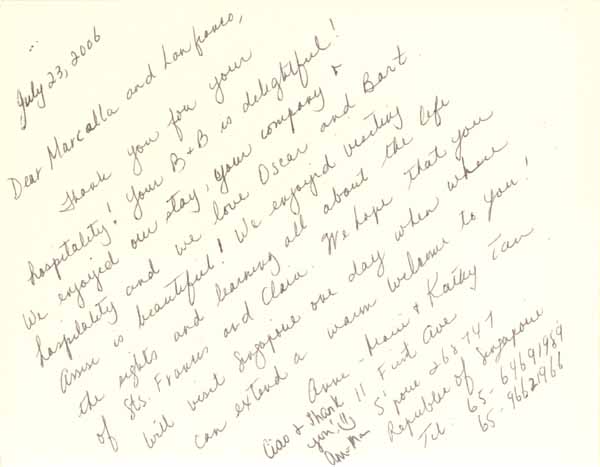 July 23, 2006
Dear Marcalla and Lanfranco,
Thank you for your
hospitality! Your B+B is delightful!
We enjoyed our stay, your company &
hospitality and we love Oscar and Bart.
Assisi is beautiful! We enjoyed visiting
the sights and learning all about the life
of Sts. Francis and Clair. We hope that you
will visit Singapore one day when whare
can extend a warm welcome to you!
Anne-Marie & Kathy Tan
11 First Ave
S'pore 268747
Republic of Singapore
Tel: 65-64691989
65-96621966
Ciao & Thank
you!